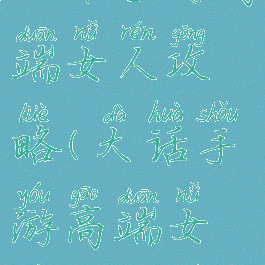 duān nǚ rén gōng
端女人攻
lüè dà huà shǒu
略(大话手
yóu gāo duān nǚ
游高端女